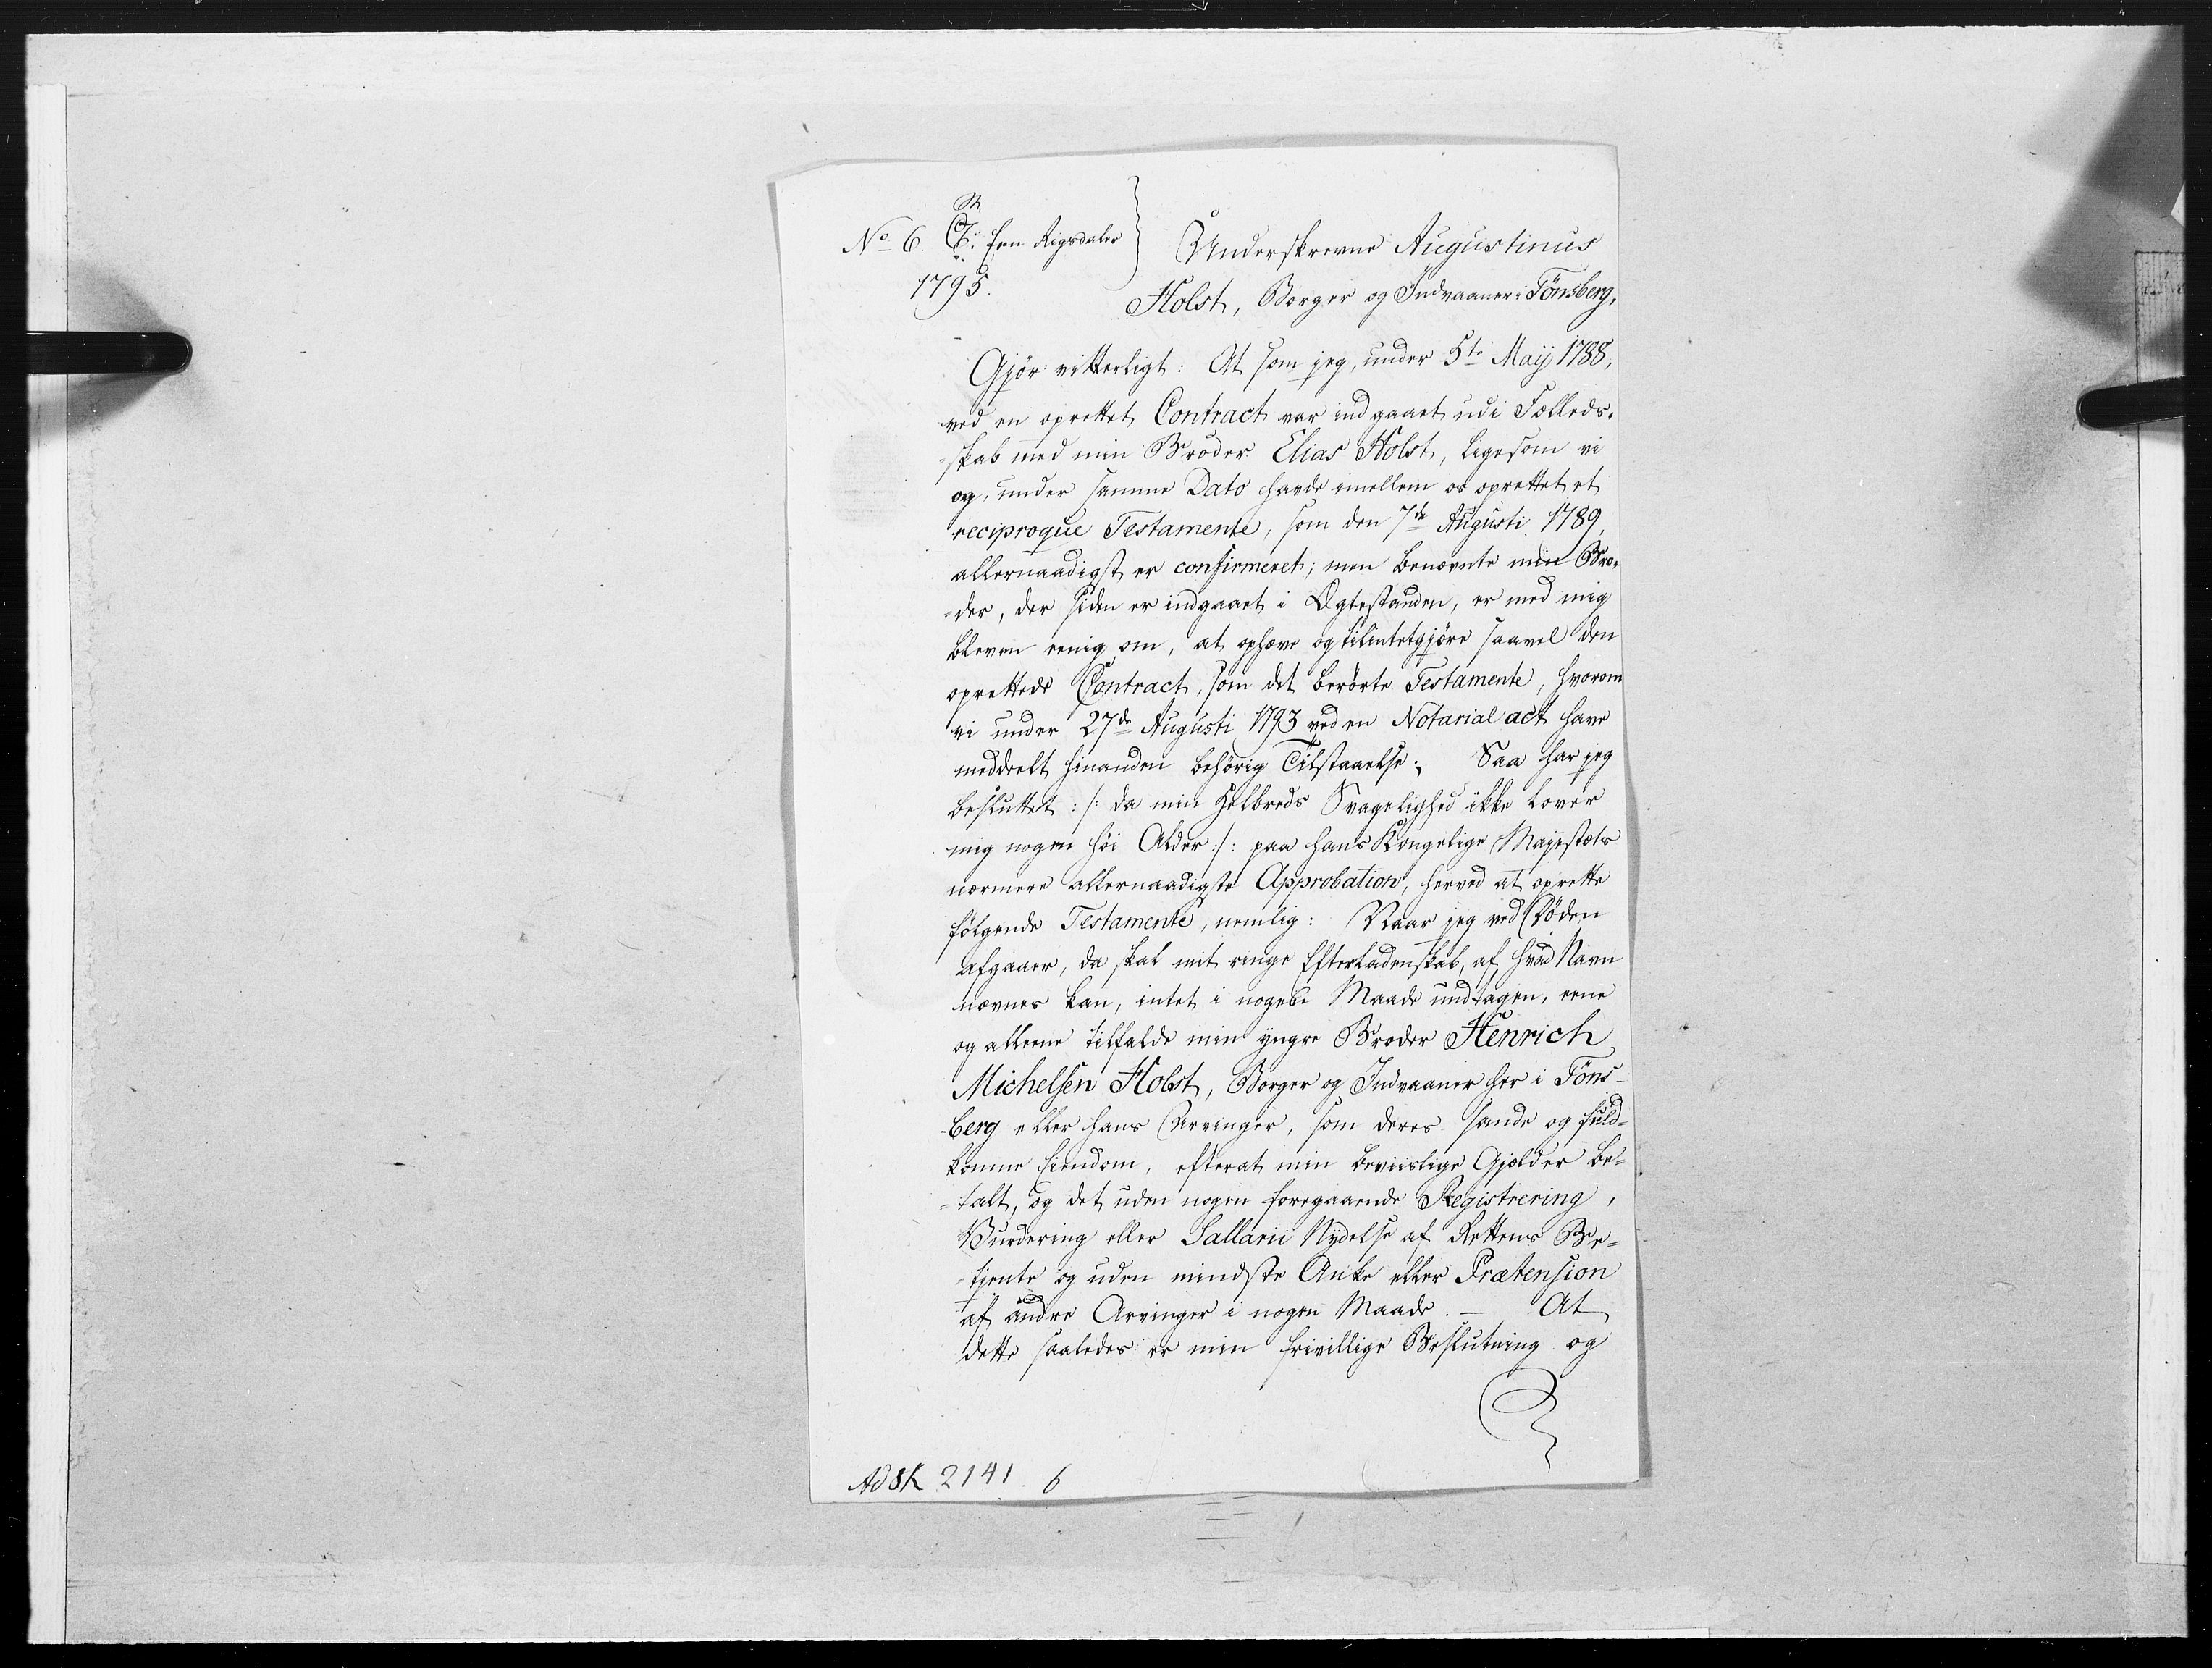 No 6. C7. Een Rigsdaler
1795.
Underskrevne Augustinus
Holst, Borger og Indvaaner i Tönsberg,
Gjør vitterligt: At som jeg, under 5te Maij 1788,
ved en oprettet Contract var indgaaet udi Fælleds-
skab med min Broder Elias Holst, ligesom vi
og, under samme Dato havde imellem os oprettet et
reciproque Testamente, som den 7de Augusti 1789,
allernaadigst er confirmeret; men benævnte min Bro-
-der, der siden er indgaaet i Ægtestanden, er med mig
bleven eenig om, at ophæve og tilintetgjøre saavel den
oprettede Contract, som det berørte Testamente, hvorom
vi under 27de Augusti 1793 ved en Notarial act have
meddeelt hinanden behörig Tilstaaelse; Saa har jeg
besluttet :/: da min Helbreds Svagelighed ikke lover
mig nogen høi Alder :/: paa Hans Kongelige Majestæts
nærmere allernaadigste Approbation, herved at oprette
følgende Testamente, nemlig: Naar jeg ved Døden
afgaaer, da skal mit ringe Efterladenskab, af hvad Navn
nævnes kan, intet i nogen Maade undtagen, eene
og alleene tilfalde min yngre Broder Henrich
Michelsen Holst, Borger og Indvaaner her i Töns-
-berg eller hans Arvinger, som deres sande og fuld-
komne Eiendom, efterat min beviislige Gjæld er be-
-talt, og det uden nogen foregaaende Registrering,
Vurdering eller Sallarii Nydelse af Rettens Be-
-tjente og uden mindste Anke eller Prætension
af andre Arvinger i nogen Maade. — At
dette saaledes er min frivillige Beslutning og
Ad SK 2141. 6